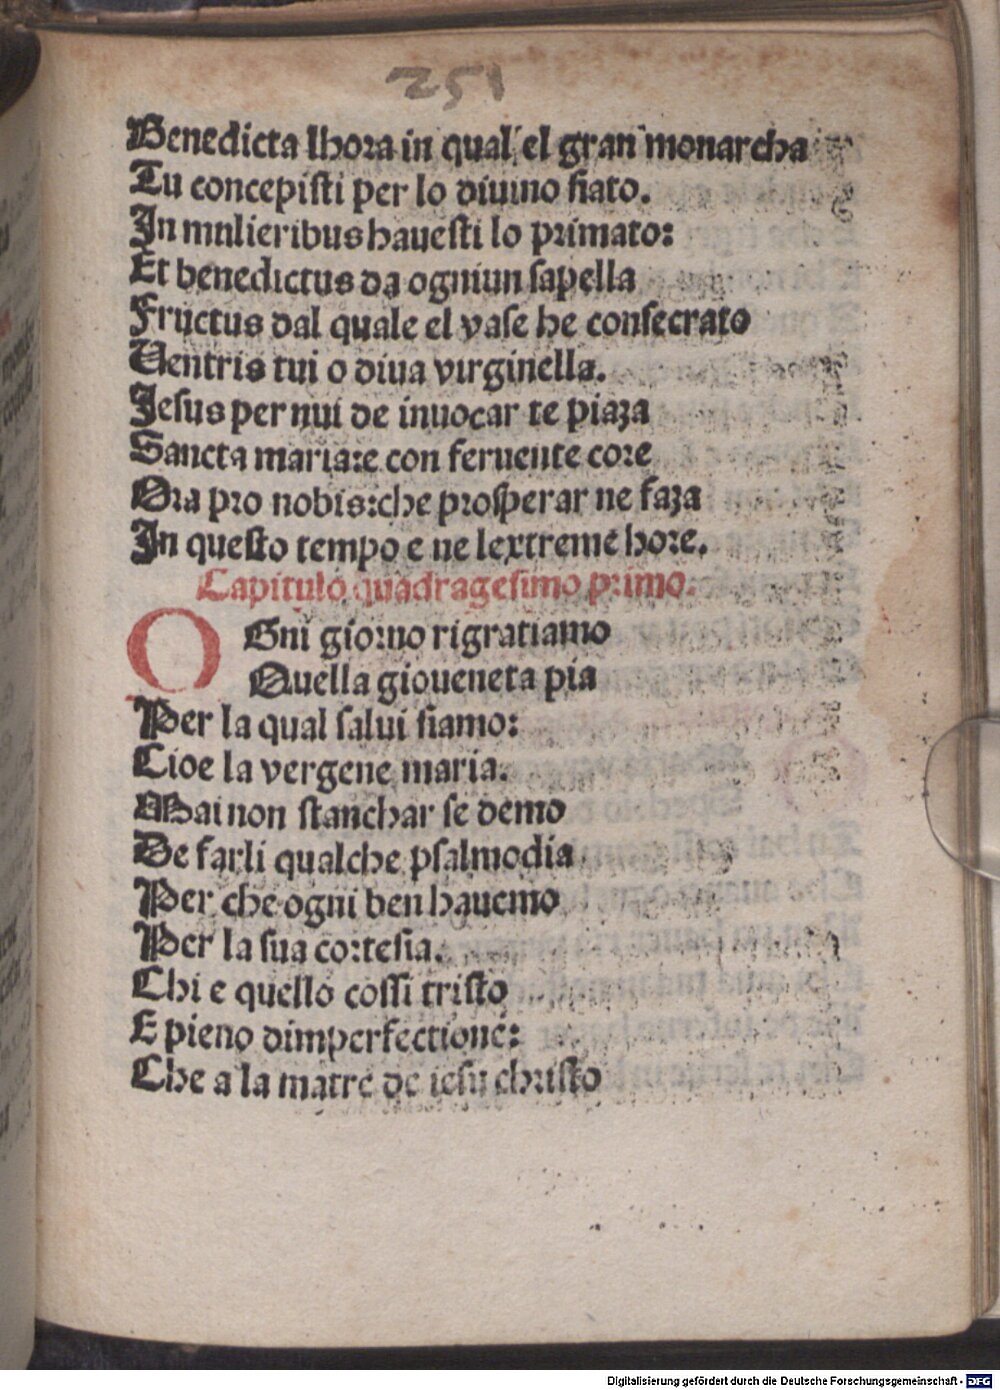 251
Benedicta lhora in qual el gran monarcha
Tu concepisti per lo diuino fiato.
In mulieribus hauesti lo primato:
Et benedictus da ogniun sapella
Fructus dal quale el vase he consecrato
Uentris tui o diua virginella.
Jesus per nui de inuocar te piaza
Sancta maria:e con feruente core
Ora pro nobis:che prosperar ne faza
In questo tempo e ne lextreme hore.
Capitulo quadragesimo primo.
OGni giorno rigratiamo
Quella gioueneta pia
Per la qual salui siamo:
Cioe la vergene maria.
Mai non stanchar se demo
De farli qualche psalmodia
Per che ogni ben hauemo
Per la sua cortesia.
Chi e quello cossi tristo
E pieno dimperfectione:
Che a la matre de iesu christo
Digitalisierung gefördert durch die Deutsche Forschungsgemeinschaft - DFG